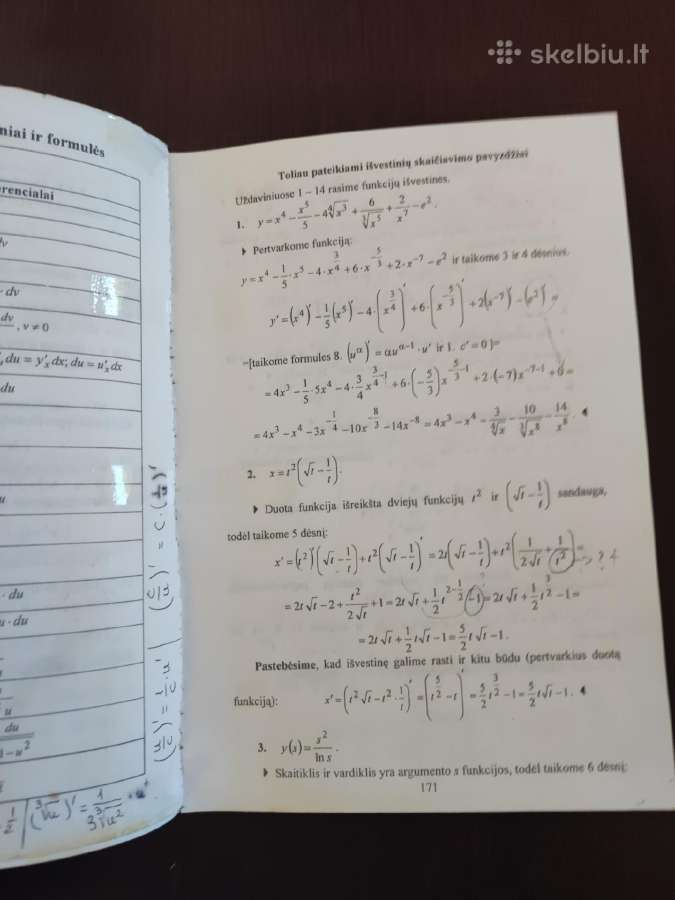 skelbiu.lt
niai ir formulės
erencialai
dv
· dv
dv/, v≠0
du = y'ₓdx; du = u'ₓdx
du
u
· du
u · du
u
du
1–u²
(u/c)' = 1/c u' | (c/u)' = c·(1/u)'
1/2 | (∛u)' = 1/(3∛u²) · u'
Toliau pateikiami išvestinių skaičiavimo pavyzdžiai
Uždaviniuose 1 – 14 rasime funkcijų išvestines.
1. y = x⁴ – x⁵/5 – 4⁴√x³ + 6/∛x⁵ + 2/x⁷ – e².
Pertvarkome funkciją:
y = x⁴ – 1/5 · x⁵ – 4 · x^(3/4) + 6 · x^(–5/3) + 2 · x⁻⁷ – e² ir taikome 3 ir 4 dėsnius.
y' = (x⁴)' – 1/5 (x⁵)' – 4 · (x^(3/4))' + 6 · (x^(–5/3))' + 2(x⁻⁷)' – (e²)' =
=[taikome formules 8. (u^α)' = αu^(α–1) · u' ir 1. c' = 0]=
= 4x³ – 1/5 · 5x⁴ – 4 · 3/4 x^(3/4–1) + 6 · (–5/3) x^(–5/3–1) + 2 · (–7)x^(–7–1) + 0 =
= 4x³ – x⁴ – 3x^(–1/4) – 10x^(–8/3) – 14x⁻⁸ = 4x³ – x⁴ – 3/⁴√x – 10/∛x⁸ – 14/x⁸.
2. x = t²(√t – 1/t).
Duota funkcija išreikšta dviejų funkcijų t² ir (√t – 1/t) sandauga,
todėl taikome 5 dėsnį:
x' = (t²)'(√t – 1/t) + t²(√t – 1/t)' = 2t(√t – 1/t) + t²(1/(2√t) + 1/t²) = ? 4
= 2t√t – 2 + t²/(2√t) + 1 = 2t√t + 1/2 t^(2–1/2) – 1 = 2t√t + 1/2 t^(3/2) – 1 =
= 2t√t + 1/2 t√t – 1 = 5/2 t√t – 1.
Pastebėsime, kad išvestinę galime rasti ir kitu būdu (pertvarkius duotą
funkciją): x' = (t²√t – t² · 1/t)' = (t^(5/2) – t)' = 5/2 t^(3/2) – 1 = 5/2 t√t – 1.
3. y(s) = s²/ln s.
Skaitiklis ir vardiklis yra argumento s funkcijos, todėl taikome 6 dėsnį:
171